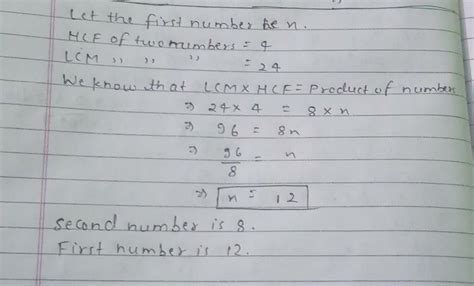 Let the first number be n.
HCF of two numbers = 4
LCM ,, ,, ,, = 24
We know that LCM x HCF = Product of number
⇒ 24 x 4 = 8 x n
⇒ 96 = 8n
⇒ 96/8 = n
⇒ n = 12
Second number is 8.
First number is 12.